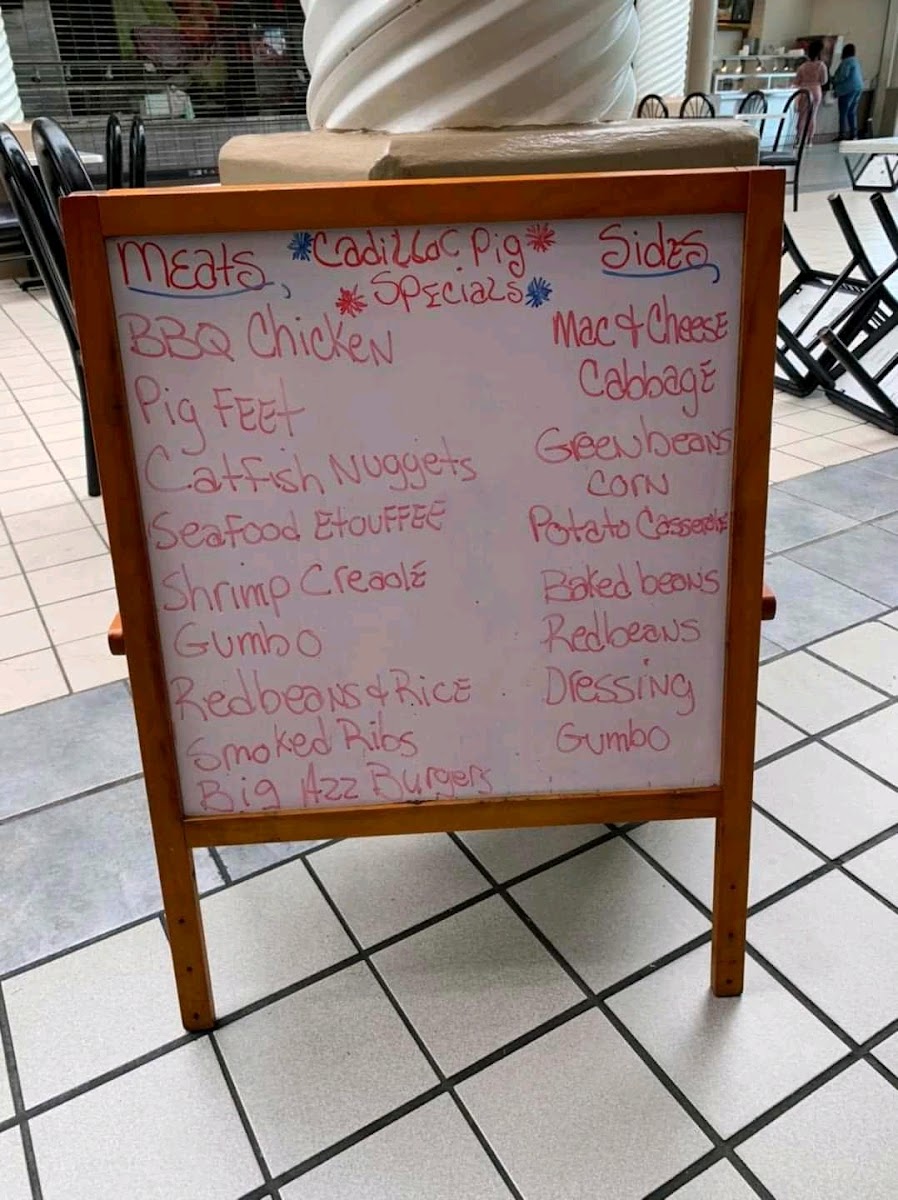 Meats
Cadillac Pig
Specials
BBQ Chicken
Pig Feet
Catfish Nuggets
Seafood Etouffee
Shrimp Creaole
Gumbo
Redbeans & Rice
Smoked Ribs
Big Azz Burgers
Sides
Mac & Cheese
Cabbage
Greenbeans
Corn
Potato Casserole
Baked beans
Redbeans
Dressing
Gumbo